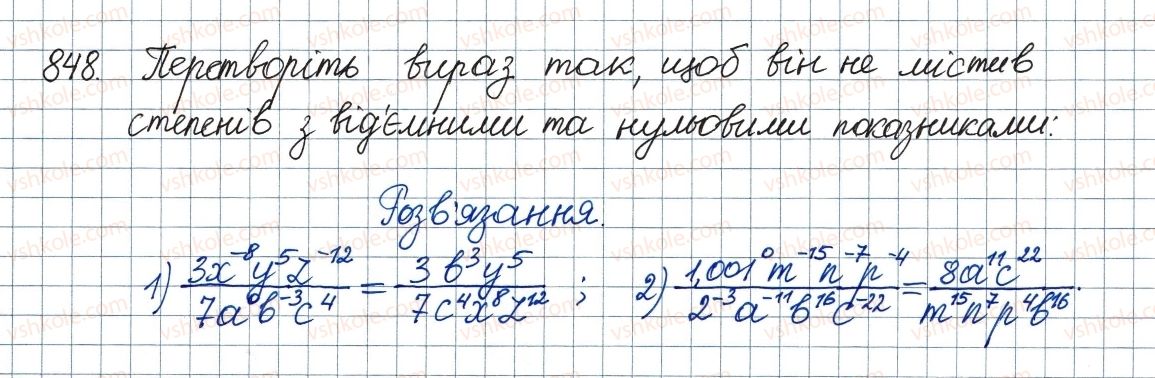 848. Перетворіть вираз так, щоб він не містив
степенів з від'ємними та нульовими показниками:
Розв'язання.
1) \frac{3x^{-8}y^{5}z^{-12}}{7a^{0}b^{-3}c^{4}} = \frac{3b^{3}y^{5}}{7c^{4}x^{8}z^{12}}; 2) \frac{1,001^{0}m^{-15}n^{-7}p^{-4}}{2^{-3}a^{-11}b^{16}c^{-22}} = \frac{8a^{11}c^{22}}{m^{15}n^{7}p^{4}b^{16}}.